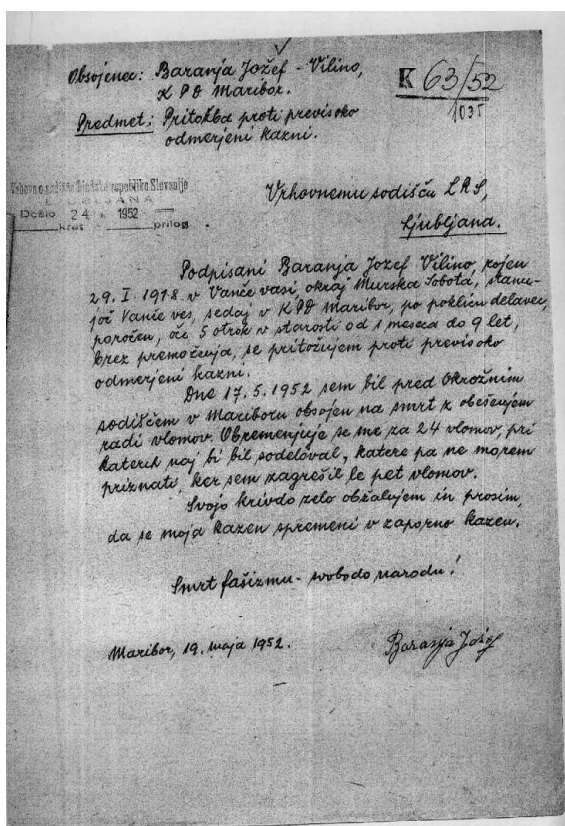 Obsojenec: Baranja Jožef - Vilino,
K P D Maribor.
K 63/52
1035
Predmet: Pritožba proti previsoko
odmerjeni kazni.
Vrhovno sodišče Ljudske republike Slovenije
LJUBLJANA
Došlo 24 1952
krat prilog
Vrhovnemu sodišču LRS,
Ljubljana.
Podpisani Baranja Jozef Vilino, rojen
29. I. 1918. v Vanče vasi, okraj Murska Sobota, stanu-
joč Vanče ves, sedaj v KPD Maribor, po poklicu delavec,
poročen, oče 5 otrok v starosti od 1 meseca do 9 let,
brez premoženja, se pritožujem proti previsoko
odmerjeni kazni.
Dne 17.5.1952 sem bil pred Okrožnim
sodiščem v Mariboru obsojen na smrt z obešenjem
radi vlomov. Obremenjuje se me za 24 vlomov, pri
katerih naj bi bil sodeloval, katere pa ne morem
priznati, ker sem zagrešil le pet vlomov.
Svojo krivdo zelo obžalujem in prosim,
da se moja kazen spremeni v zaporno kazen.
Smrt fašizmu - svobodo narodu!
Maribor, 19. maja 1952.
Baranja Jožef